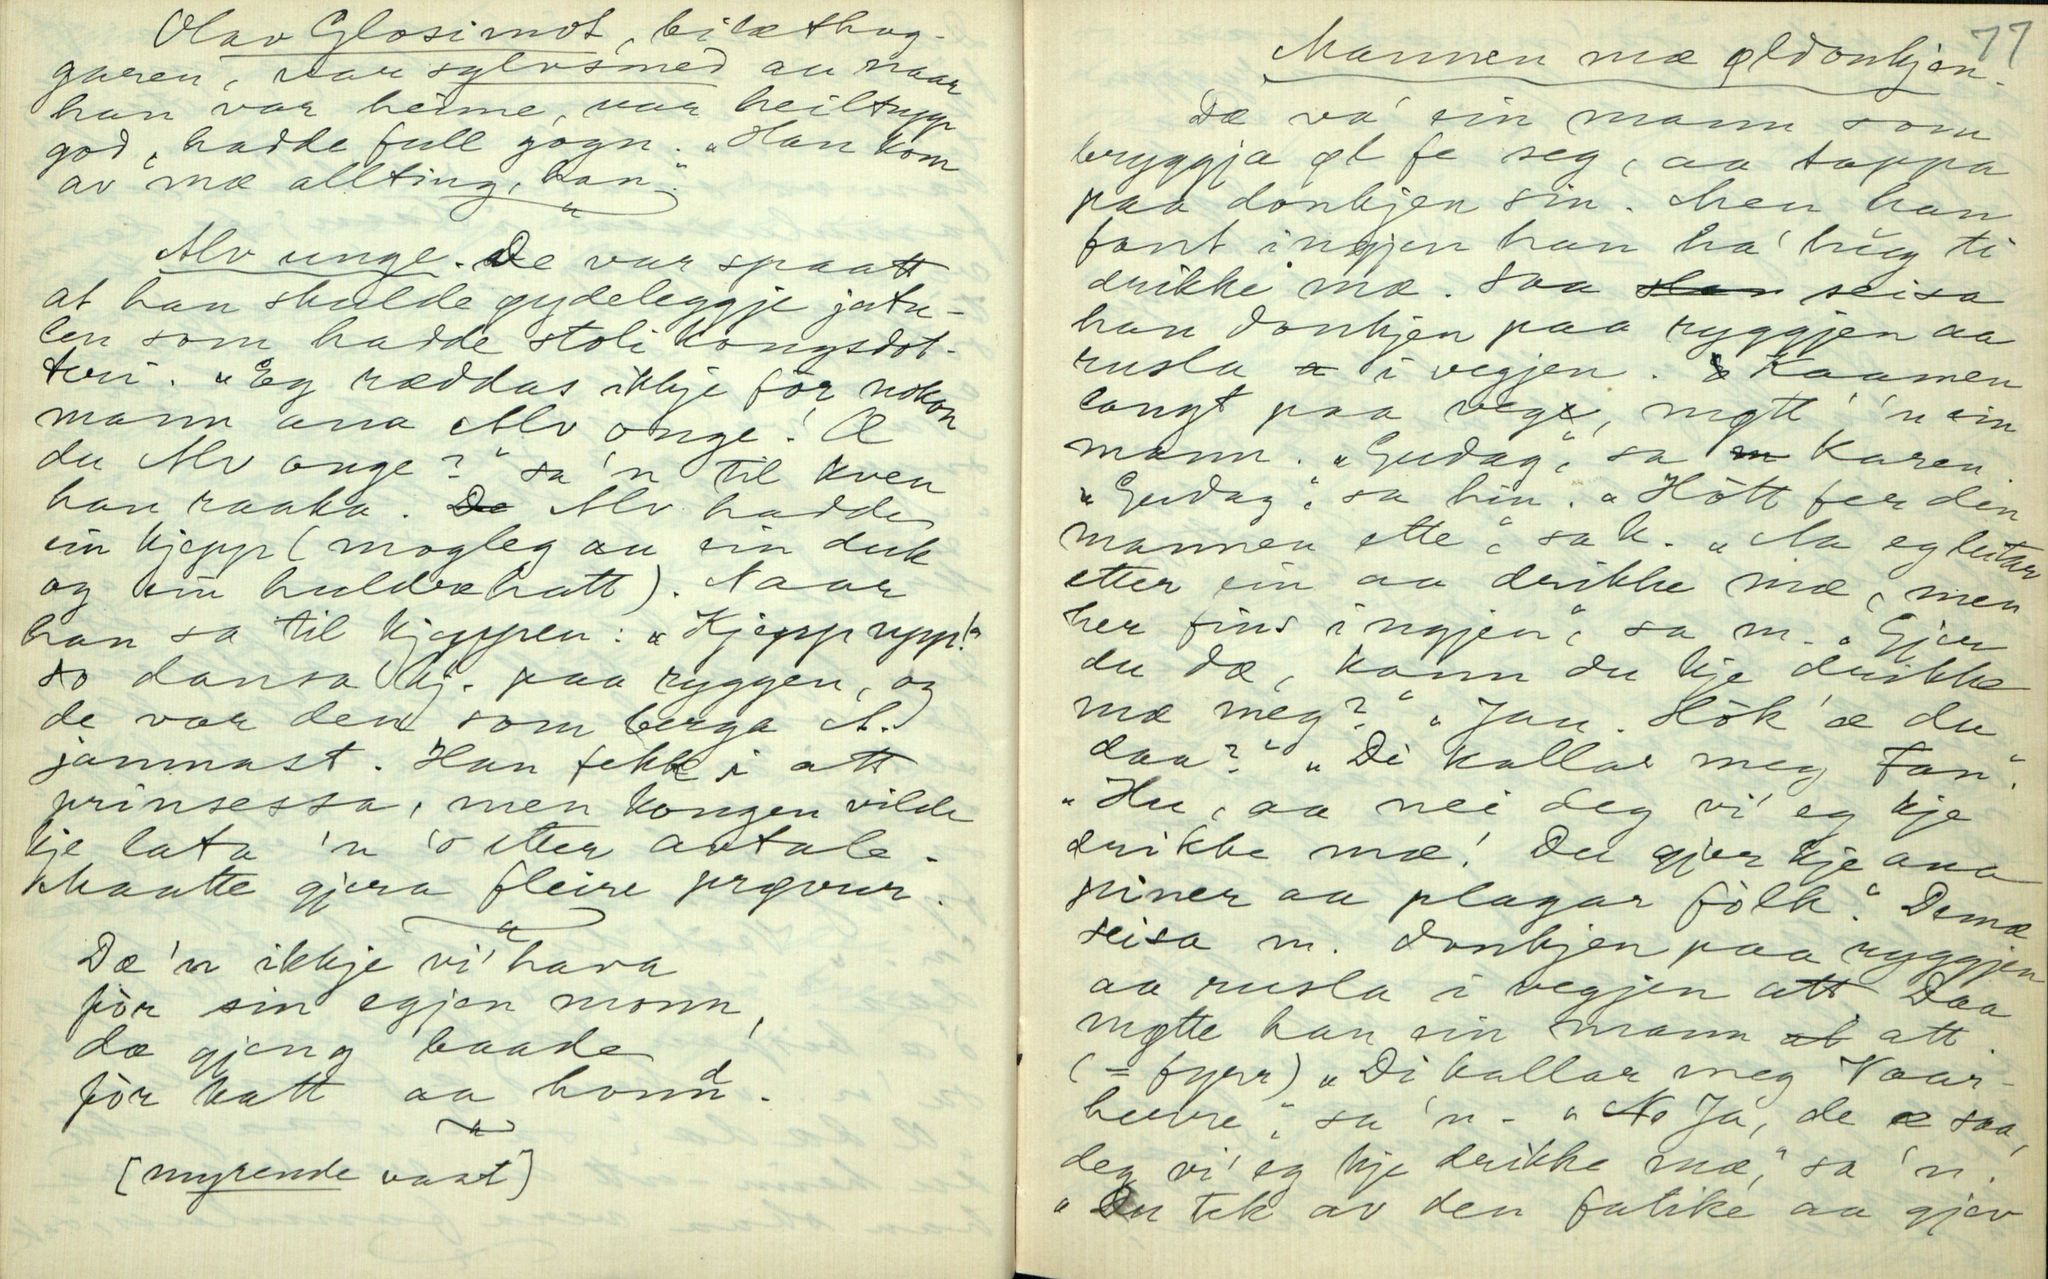 Olav Glosimot, bilæthog-
garen, var sylvsmed au naar
han var heime, var heiltupp
god, hadde full gogn. "Han kom
av mæ allting, han."
Alv unge. De var spaatt
at han skulde øydeleggje jutu-
len som hadde stoli kongsdot-
teri. "Eg ræddas ikkje for nokon
mann ana Alv onge! Æ
du Alv onge?" sa 'n til kven
han raaka. De Alv hadde
ein kjepp (mogleg au ein duk
og ein huldrehatt). Naar
han sa til kjeppen: "Kjepp upp!"
so dansa kj. paa ryggen, og
de var den som berga A.
jammast. Han fekk i att
prinsessa, men kongen vilde
kje lata 'n 'o etter avtale.
Maatte gjera fleire prøvur.
Dæ 'n ikkje vi' hava
før sin egjen monn,
dæ gjeng baade
før katt aa honnd.
[myrende vaat]
77
Mannen mæ øldonkjen.
Dæ va' ein mann som
bryggja øl fe seg, aa tappa
paa donkjen sin. Men han
fant ingjen han ha' hug ti
drikke mæ. Saa slan seisa
han donkjen paa ryggjen aa
rusla a i vegjen. Kaamen
langt paa veg, møtt' 'n ein
mann. "Gudag", sa m Karen
"Gudag". sa hin. "Hött fer din
mannen ette", sa k. "Aa eg leitar
etter ein aa drikke mæ, men
her fins ingjen", sa m. "Gjer
du dæ, kann du kje drikke
mæ meg?" "Jau. Hök' æ du
daa?" "Di kallar meg Fan".
"Hu, aa nei deg vi' eg kje
drikke mæ! Du gjer kje ana
piner aa plagar fólk." Dermæ
seisa m. donkjen paa ryggjen
aa rusla i vegjen att Daa
møtte han ein mann at att.
(= fyrr) "Di kallar meg Vaar-
herre", sa 'n - "No Ja, de æ saa,
deg vi' eg kje drikke mæ," sa 'n.
"Du tek av den fatike aa gjev